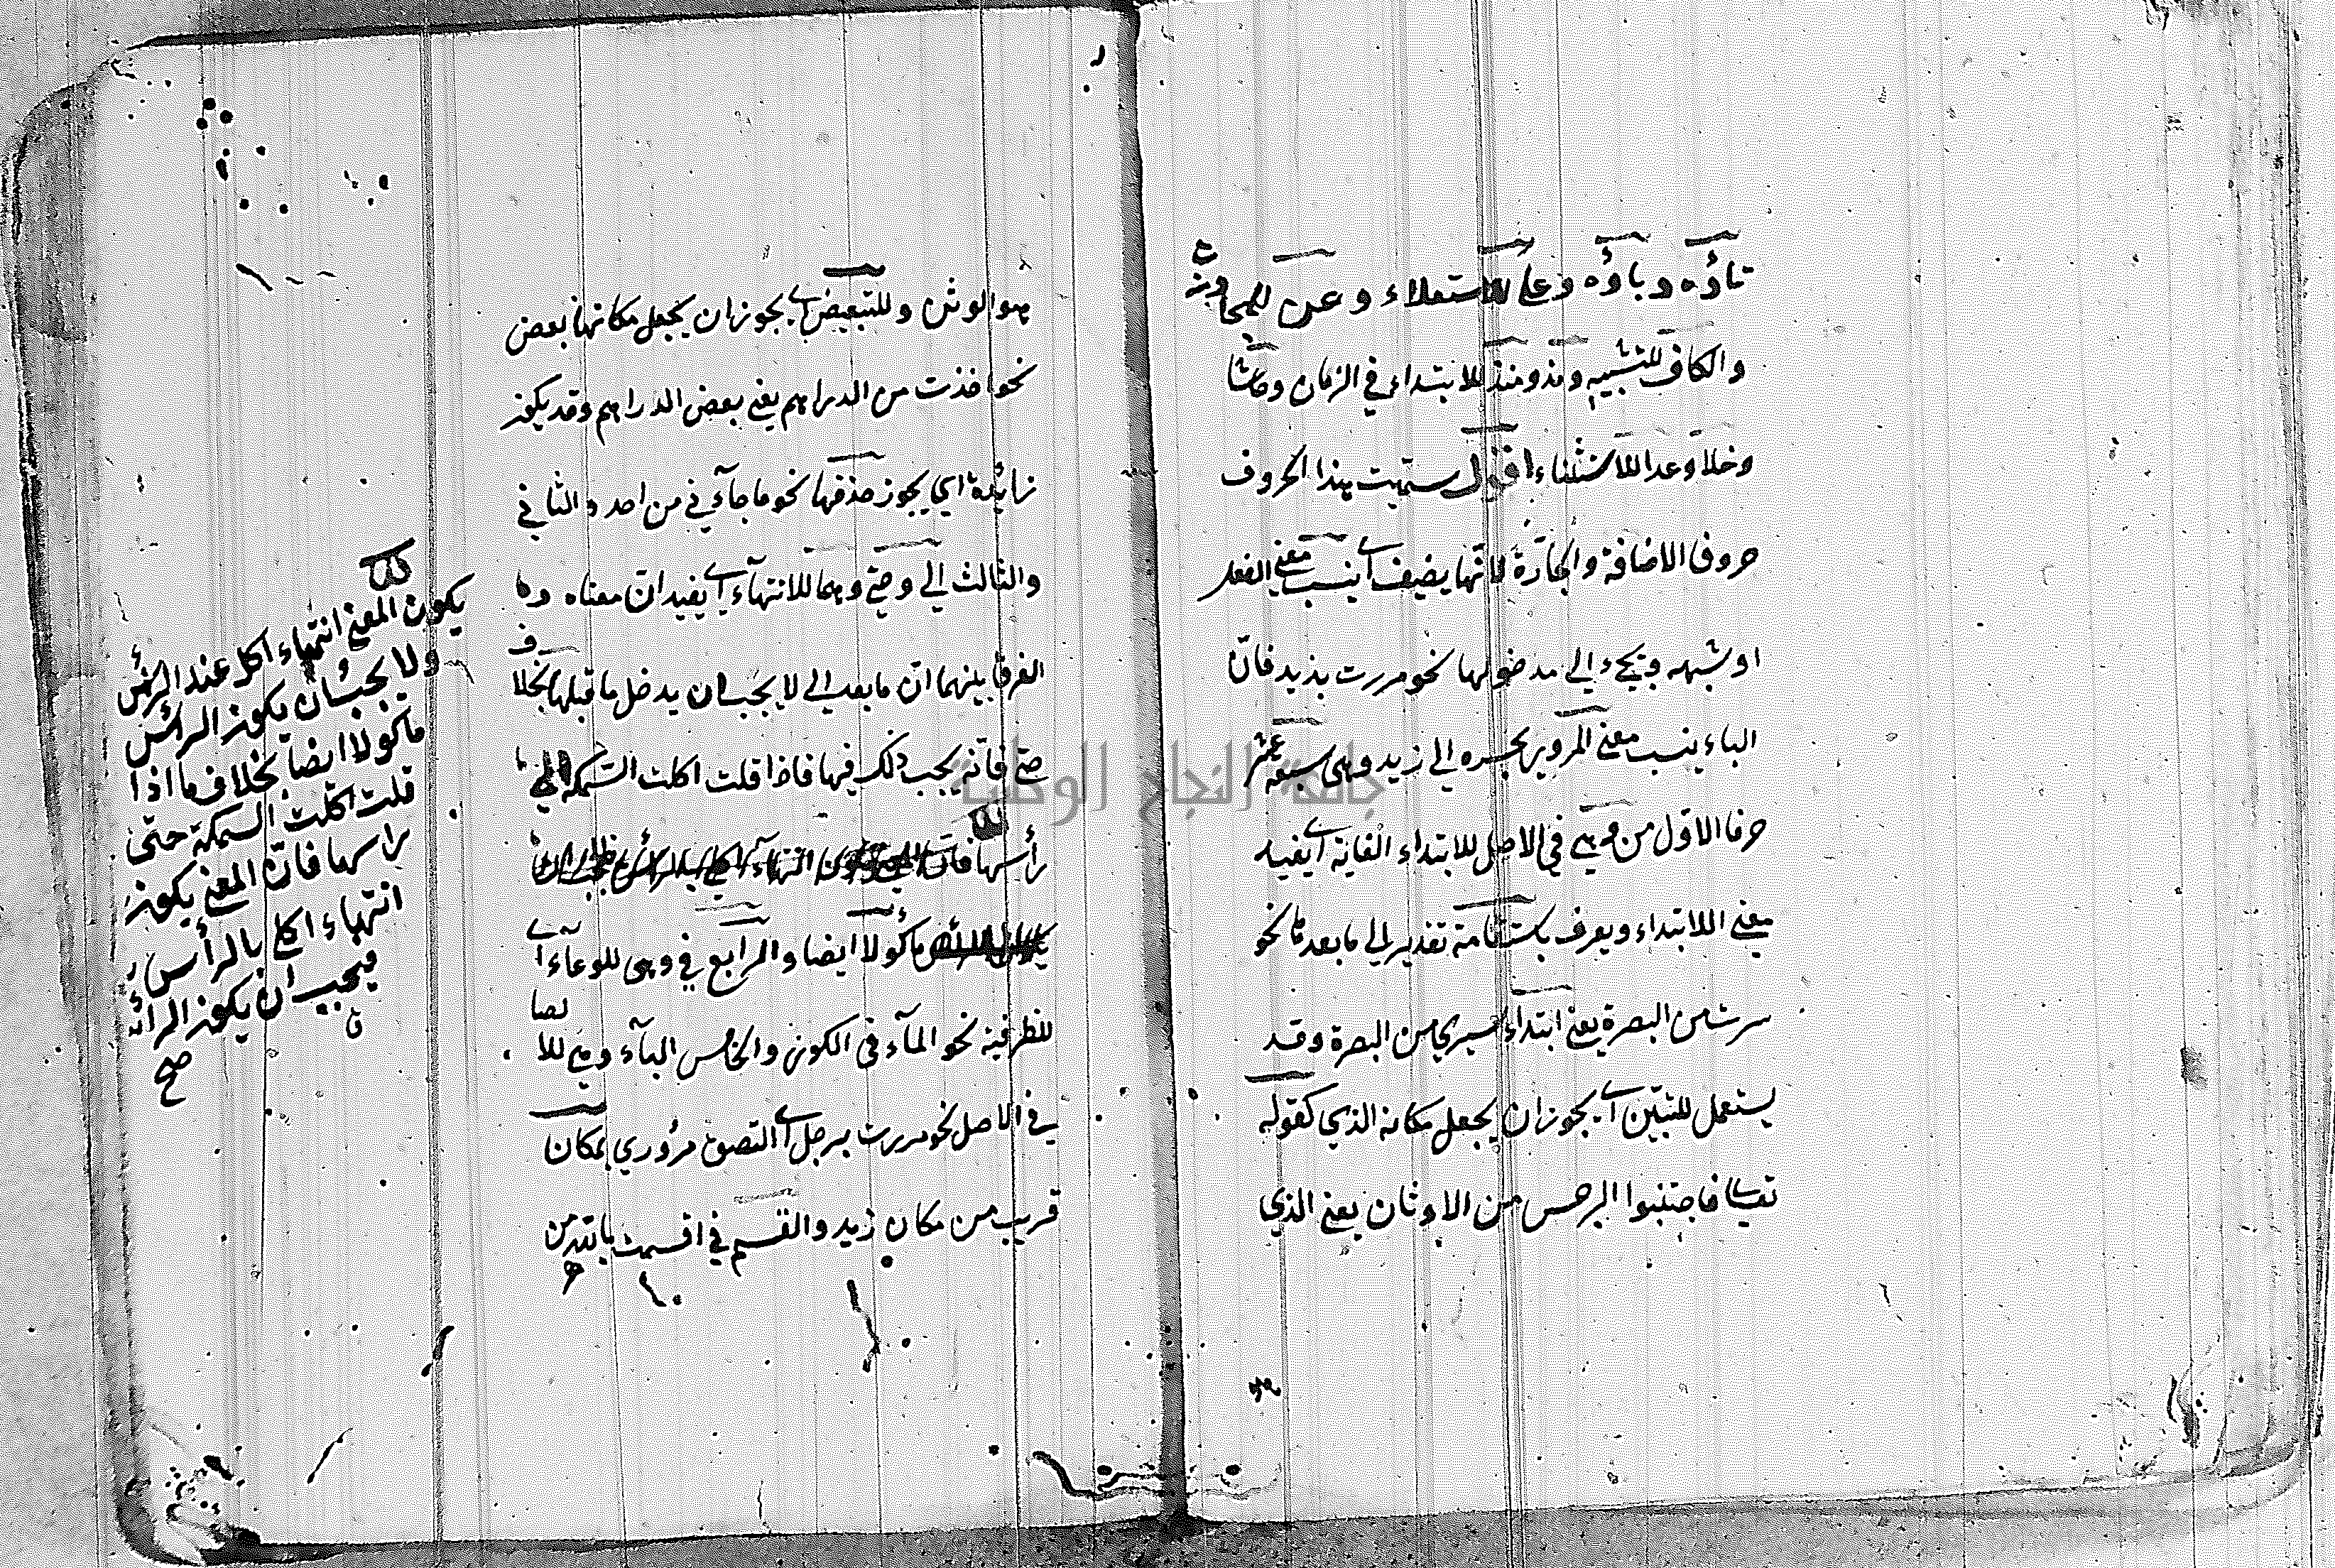 تاؤه وباؤه وعلى للاستعلاء وعن للمجاوزة
والكاف للتشبيه ومذ ومنذ للابتداء في الزمان وحاشا
وخلا وعدا للاستثناء اقول سميت هذا الحروف
حروف الاضافة والجارة لانها يضيف اي ينسب معنى الفعل
او شبهه ويجيء الى مدخولها نحو مررت بزيد فان
الباء ينسب معنى المرور بجره الى زيد وهي سبعة عشر
حرفا الاول من وهي في الاصل للابتداء الغاية اي يفيد
معنى اللابتداء ويعرف باستقامة تقدير الى مابعدها نحو
سرت من البصرة يعنى ابتداء سيري من البصرة وقد
يستعمل للتبيّن اي يجوز ان يجعل مكانه الذي كقوله
تعالى فاجتنبوا الرجس من الاوثان يعنى الذي
هو الوثن وللتبعيض اي يجوز ان يجعل مكانها بعض
نحو اخذت من الدراهم يعنى بعض الدراهم وقد يكون
زائدة اي يجوز حذفها نحو ما جآءني من احد والثاني
والثالث الى وحتى وهما للانتهآء اي يفيد ان معناه
الفرق بينهما ان مابعد الى لا يجب ان يدخل ما قبلها بخلاف
حتى فانه يجب ذلك فيها فاذا قلت اكلت السمكة الى
رأسها فان
مأكولا ايضا والرابع في وهي للوعآء اي
للظرفية نحو المآء في الكوز والخامس البآء وهي للالصاق
في الاصل نحو مررت برجل اي التصق مروري بمكان
قريب من مكان زيد والقسم في اقسمت بالله من
يكون المعنى انتهاء اكل عند الرأس
ولا يجب ان يكون الرأس
مأكولا ايضا بخلاف ما اذا
قلت اكلت السمكة حتى
راسها فان المعنى يكون
انتهاء اكل بالرأس
فيجب ان يكون الرأس
صح
جامعة النجاح الوطنية